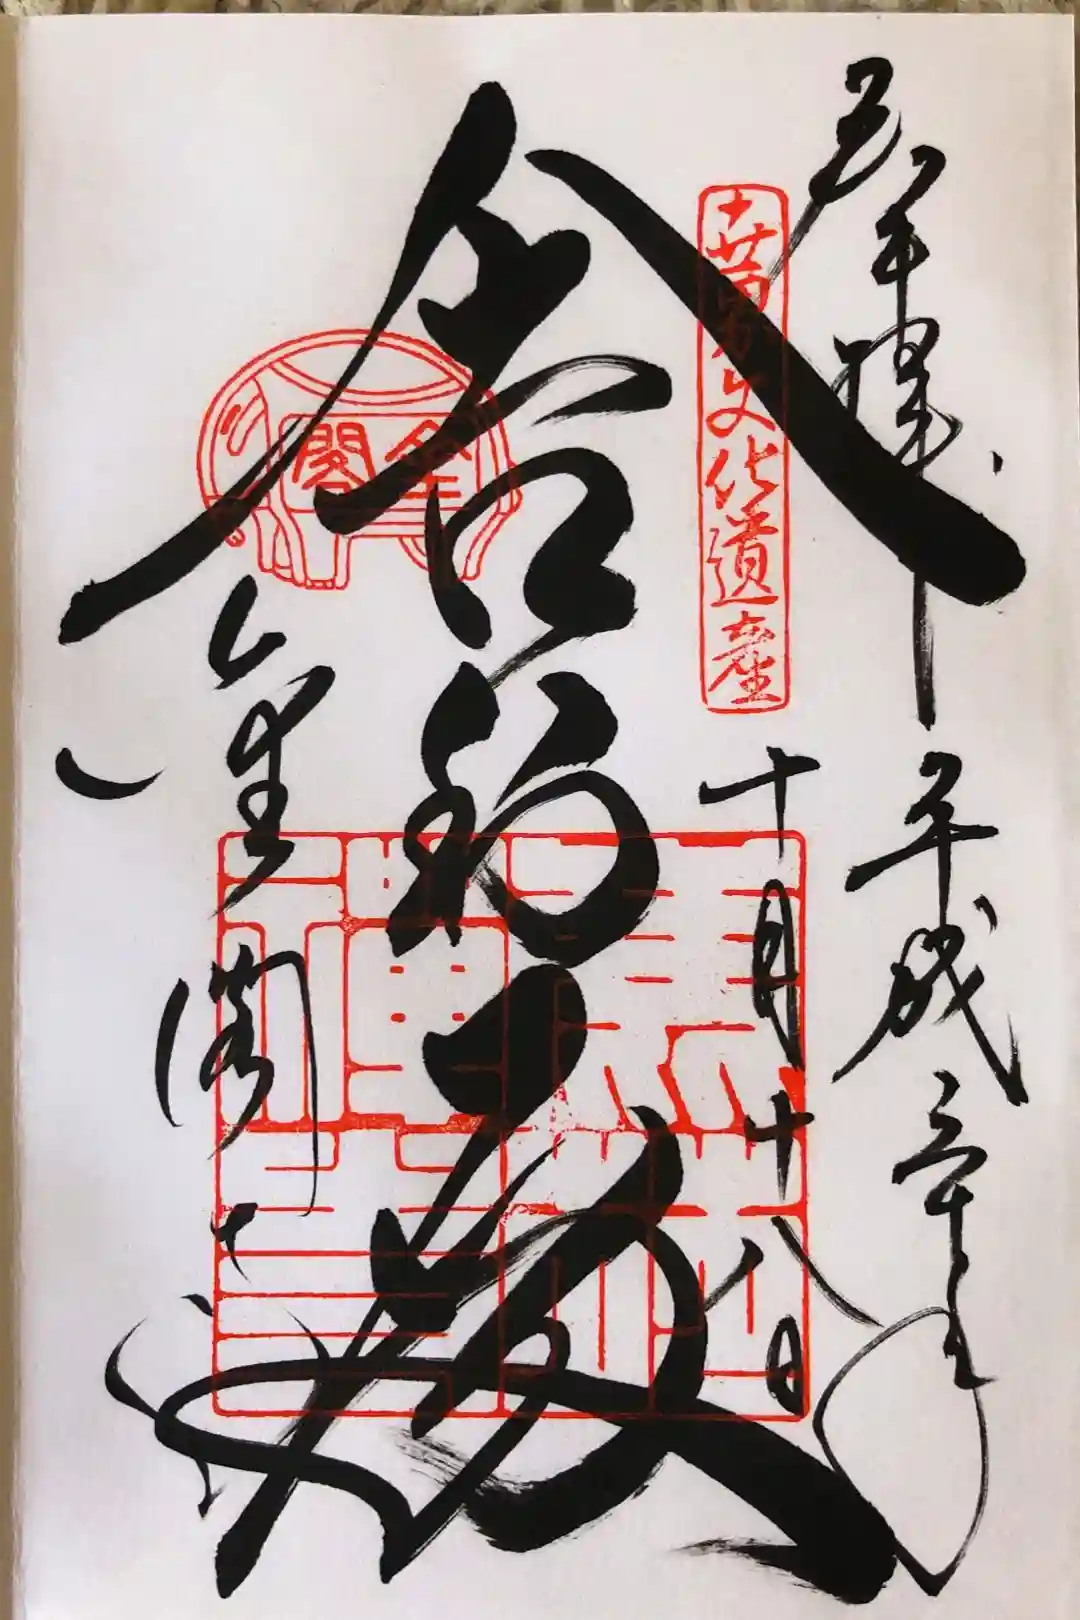 奉拝
平成三十年
十月十八日
世界文化遺産
舎利殿
金閣
金閣寺